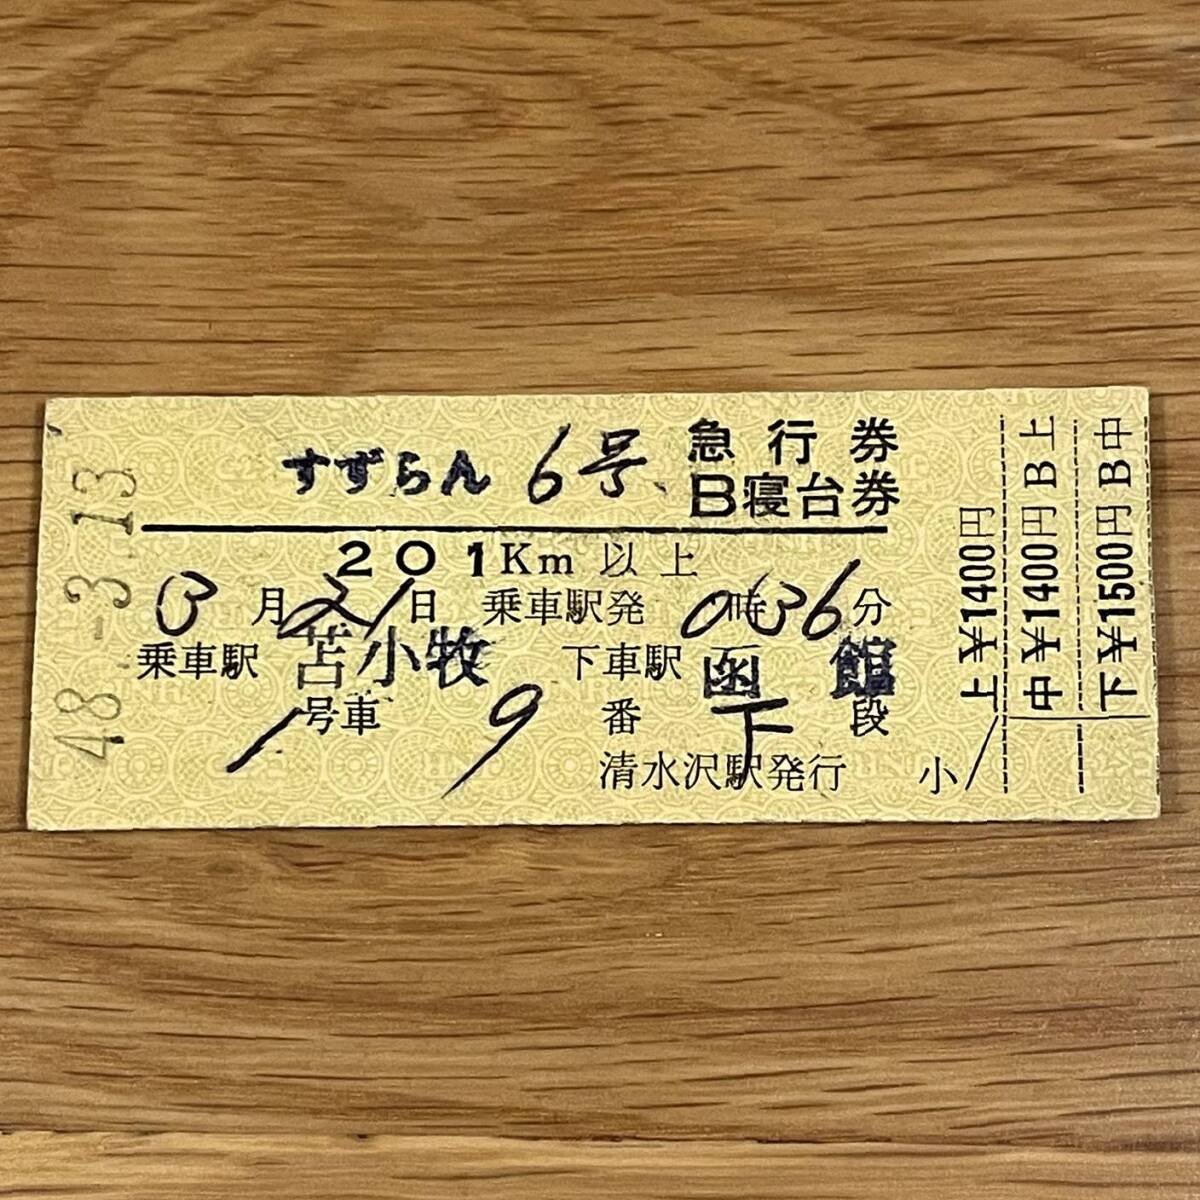 すずらん 6号 急行券
B寝台券
201Km以上
3月21日 乗車駅発 0時36分
乗車駅 苫小牧 下車駅 函館
1号車 9番 下段
清水沢駅発行 小
48.-3.13
上¥1400円
中¥1400円B上
下¥1500円B中